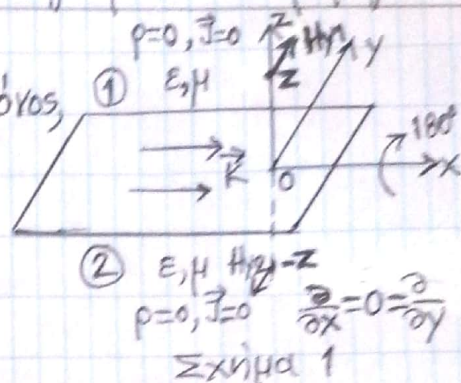 ρ=0, J⃗=0 Z
Hy1 y
όνος, ① ε,μ Z
180°
K⃗ O x
② ε,μ Hy2 -Z
ρ=0, J⃗=0 ∂/∂x=0=∂/∂y
Σχήμα 1